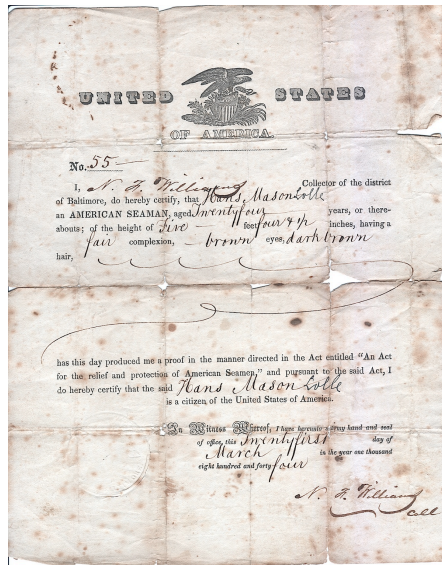 UNITED STATES
OF AMERICA.
No. 55
I, N. F. Williams Collector of the district
of Baltimore, do hereby certify, that Hans Mason Lolle
an AMERICAN SEAMAN, aged Twenty four years, or there-
abouts; of the height of Five feet four & ½ inches, having a
fair complexion, brown eyes, dark brown
hair,
has this day produced me a proof in the manner directed in the Act entitled "An Act
for the relief and protection of American Seamen," and pursuant to the said Act, I
do hereby certify that the said Hans Mason Lolle
is a citizen of the United States of America.
In Witness Whereof, I have hereunto set my hand and seal
of office, this Twenty first day of
March in the year one thousand
eight hundred and forty four
N. F. Williams
Coll